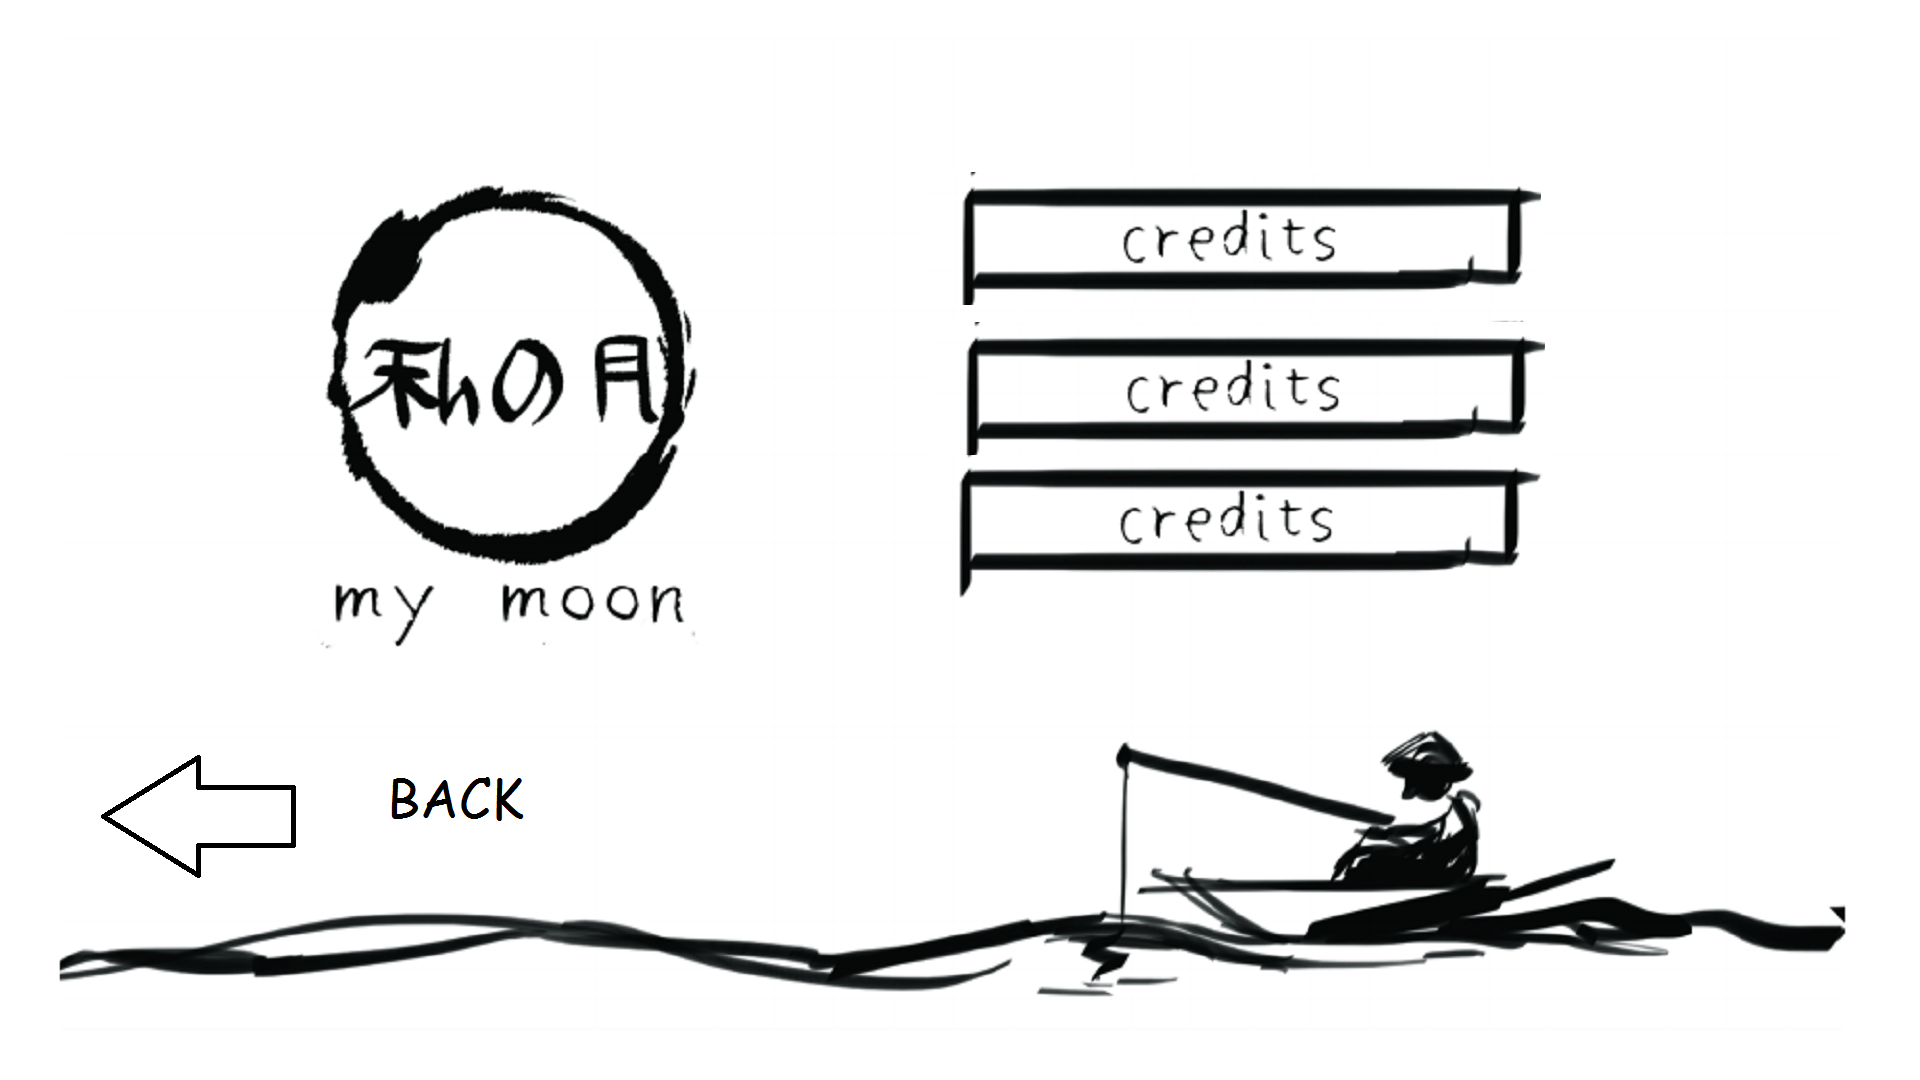 私の月
my moon
credits
credits
credits
BACK